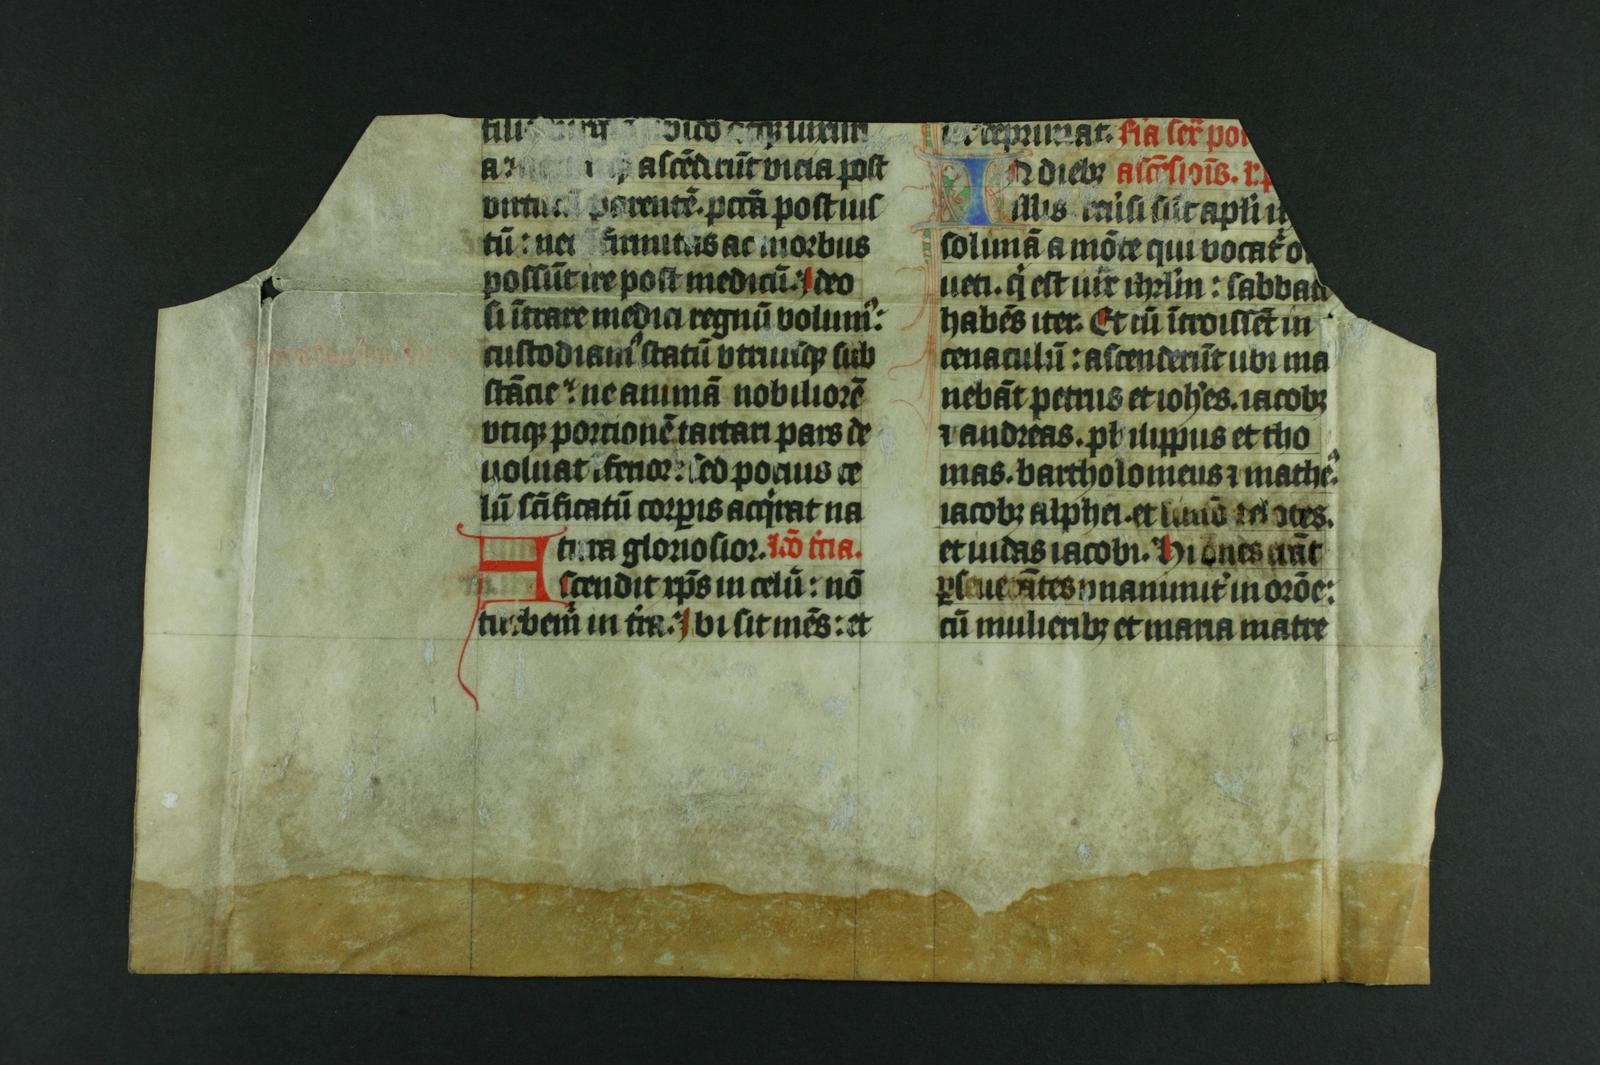 ascēdcūt vicia post
parentē. pctā post ius
tū: nec firmitas ac morbus
possūt ire post medicū. Ideo
si ītrare medici regnū volum᷒:
custodiam᷒ statū vtriusq; sub
stācie: ne animā nobiliorē
vtiq; portionē tartari pars de
uoluat īferior: sed pocius ce
lū scīficatū corꝑis acqͥrat na
tura gloriosior. Lcō tcia.
Ascendit xp̄s in celū: nō
turbem᷒ in tr̄a. Ibi sit mēs: et
deprimat. fia sex̄
In dieb; ascēsiōis.
illis reūsi sūt apl̄i
solimā a mōte qui vocat᷒
ueti. qͥ est iux̄ ihrl̄m: sabbati
habēs iter. Et cū ītroissēt in
cenaculū: ascenderūt ubi ma
nebāt petrus et ioh̄es. iacob;
⁊ andreas. philippus et tho
mas. bartholomeus ⁊ mathe᷒.
iacob; alphei. et simō zelotes.
et iudas iacobi. Hi om̄es erāt
ꝑseuerātes vnanimit᷒ in orōe:
cū mulierib; et maria matre